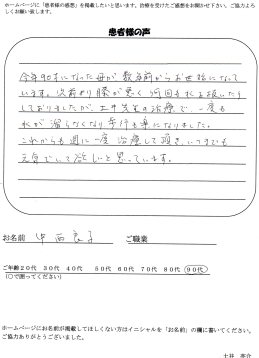 ホームページに「患者様の感想」を掲載したいと思います。治療を受けたご感想をお聞かせ下さい。ご協力よろ
しくお願い致します。
患者様の声
今年90才になった母が数年前からお世話になって
います。以前より膝が悪く何回も水を抜いたり
しておりましたが、土井先生の治療で、一度も
水が溜らなくなり歩行も楽になりました。
これからも週に一度治療して頂き、いつまでも
元気でして欲しいと思っています。
お名前 中西良子 ご職業
ご年齢20代 30代 40代 50代 60代 70代 80代 90代
(〇で囲ってください)
ホームページにお名前が掲載してほしくない方はイニシャルを「お名前」の欄に書いてください。
ご協力ありがとうございました。